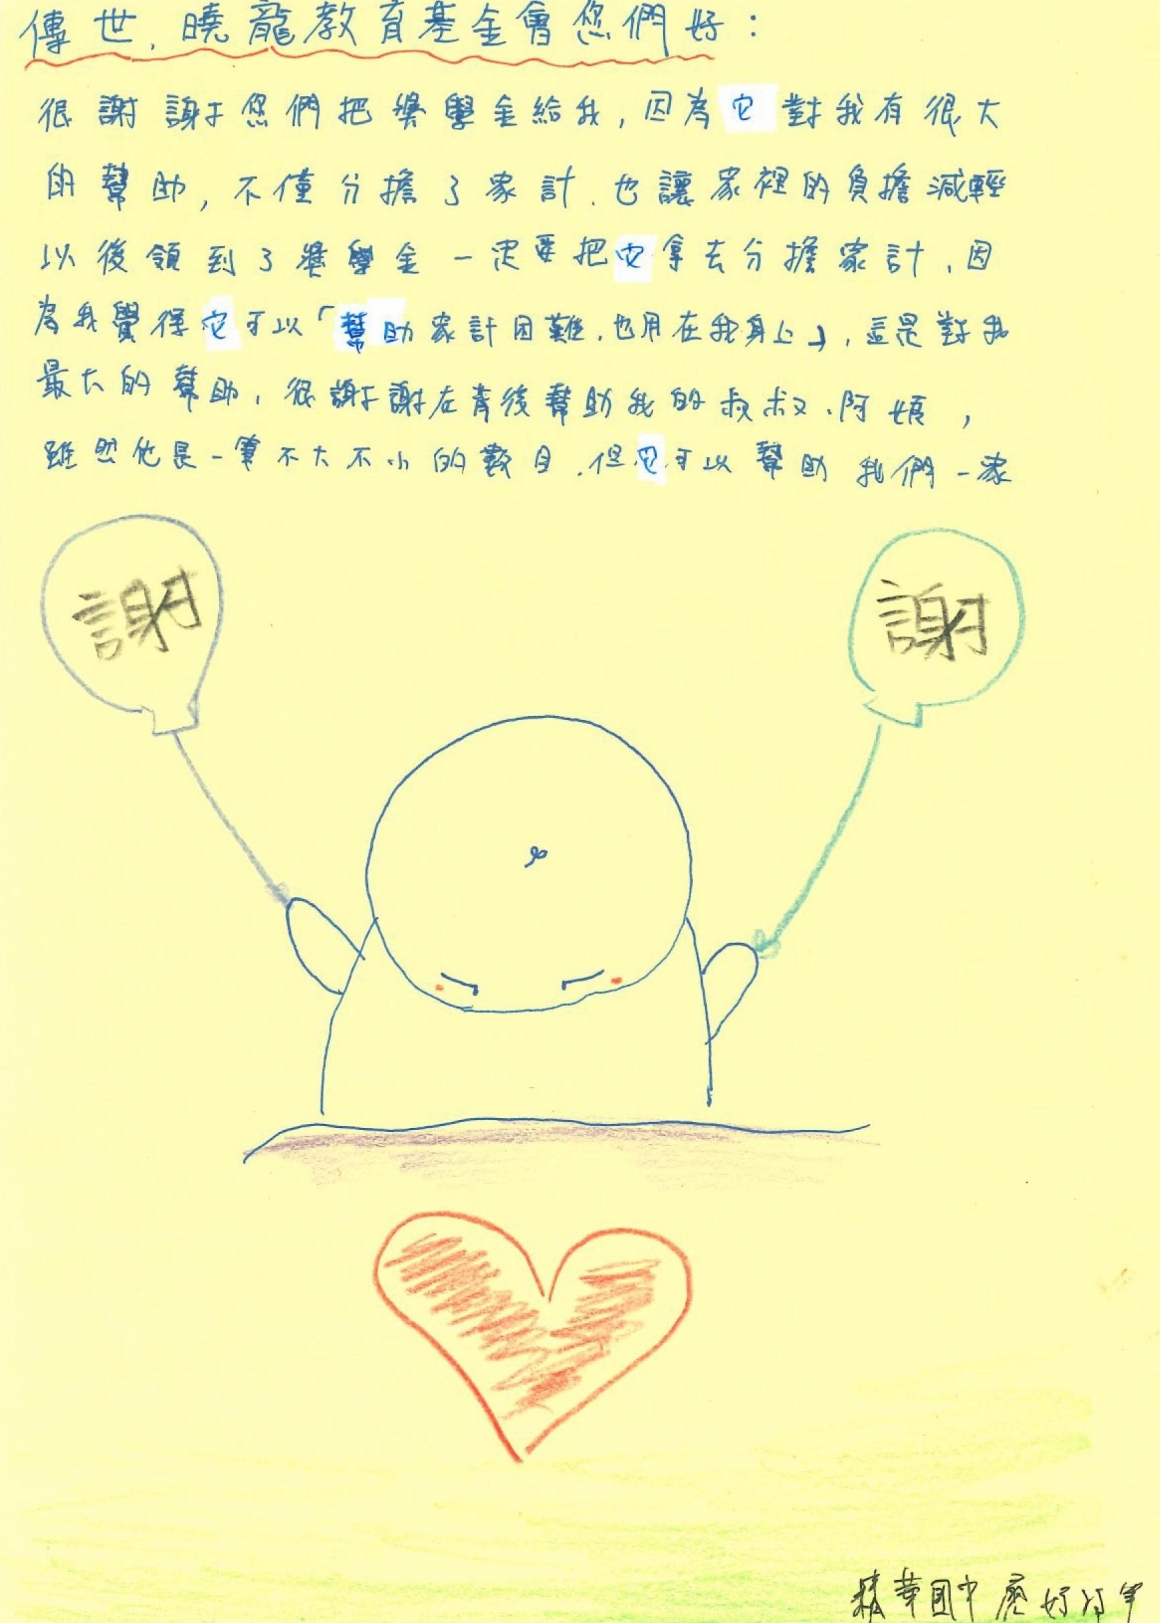 傳世、曉龍教育基金會您們好：
很謝謝您們把獎學金給我，因為它對我有很大
的幫助，不僅分擔了家計、也讓家裡的負擔減輕
以後領到了獎學金一定要把它拿去分擔家計、因
為我覺得它可以「幫助家計困難、也用在我身上」，這是對我
最大的幫助，很謝謝在背後幫助我的叔叔、阿姨，
雖然他是一筆不大不小的數目、但它可以幫助我們一家
謝
謝
精華國中 廖妤